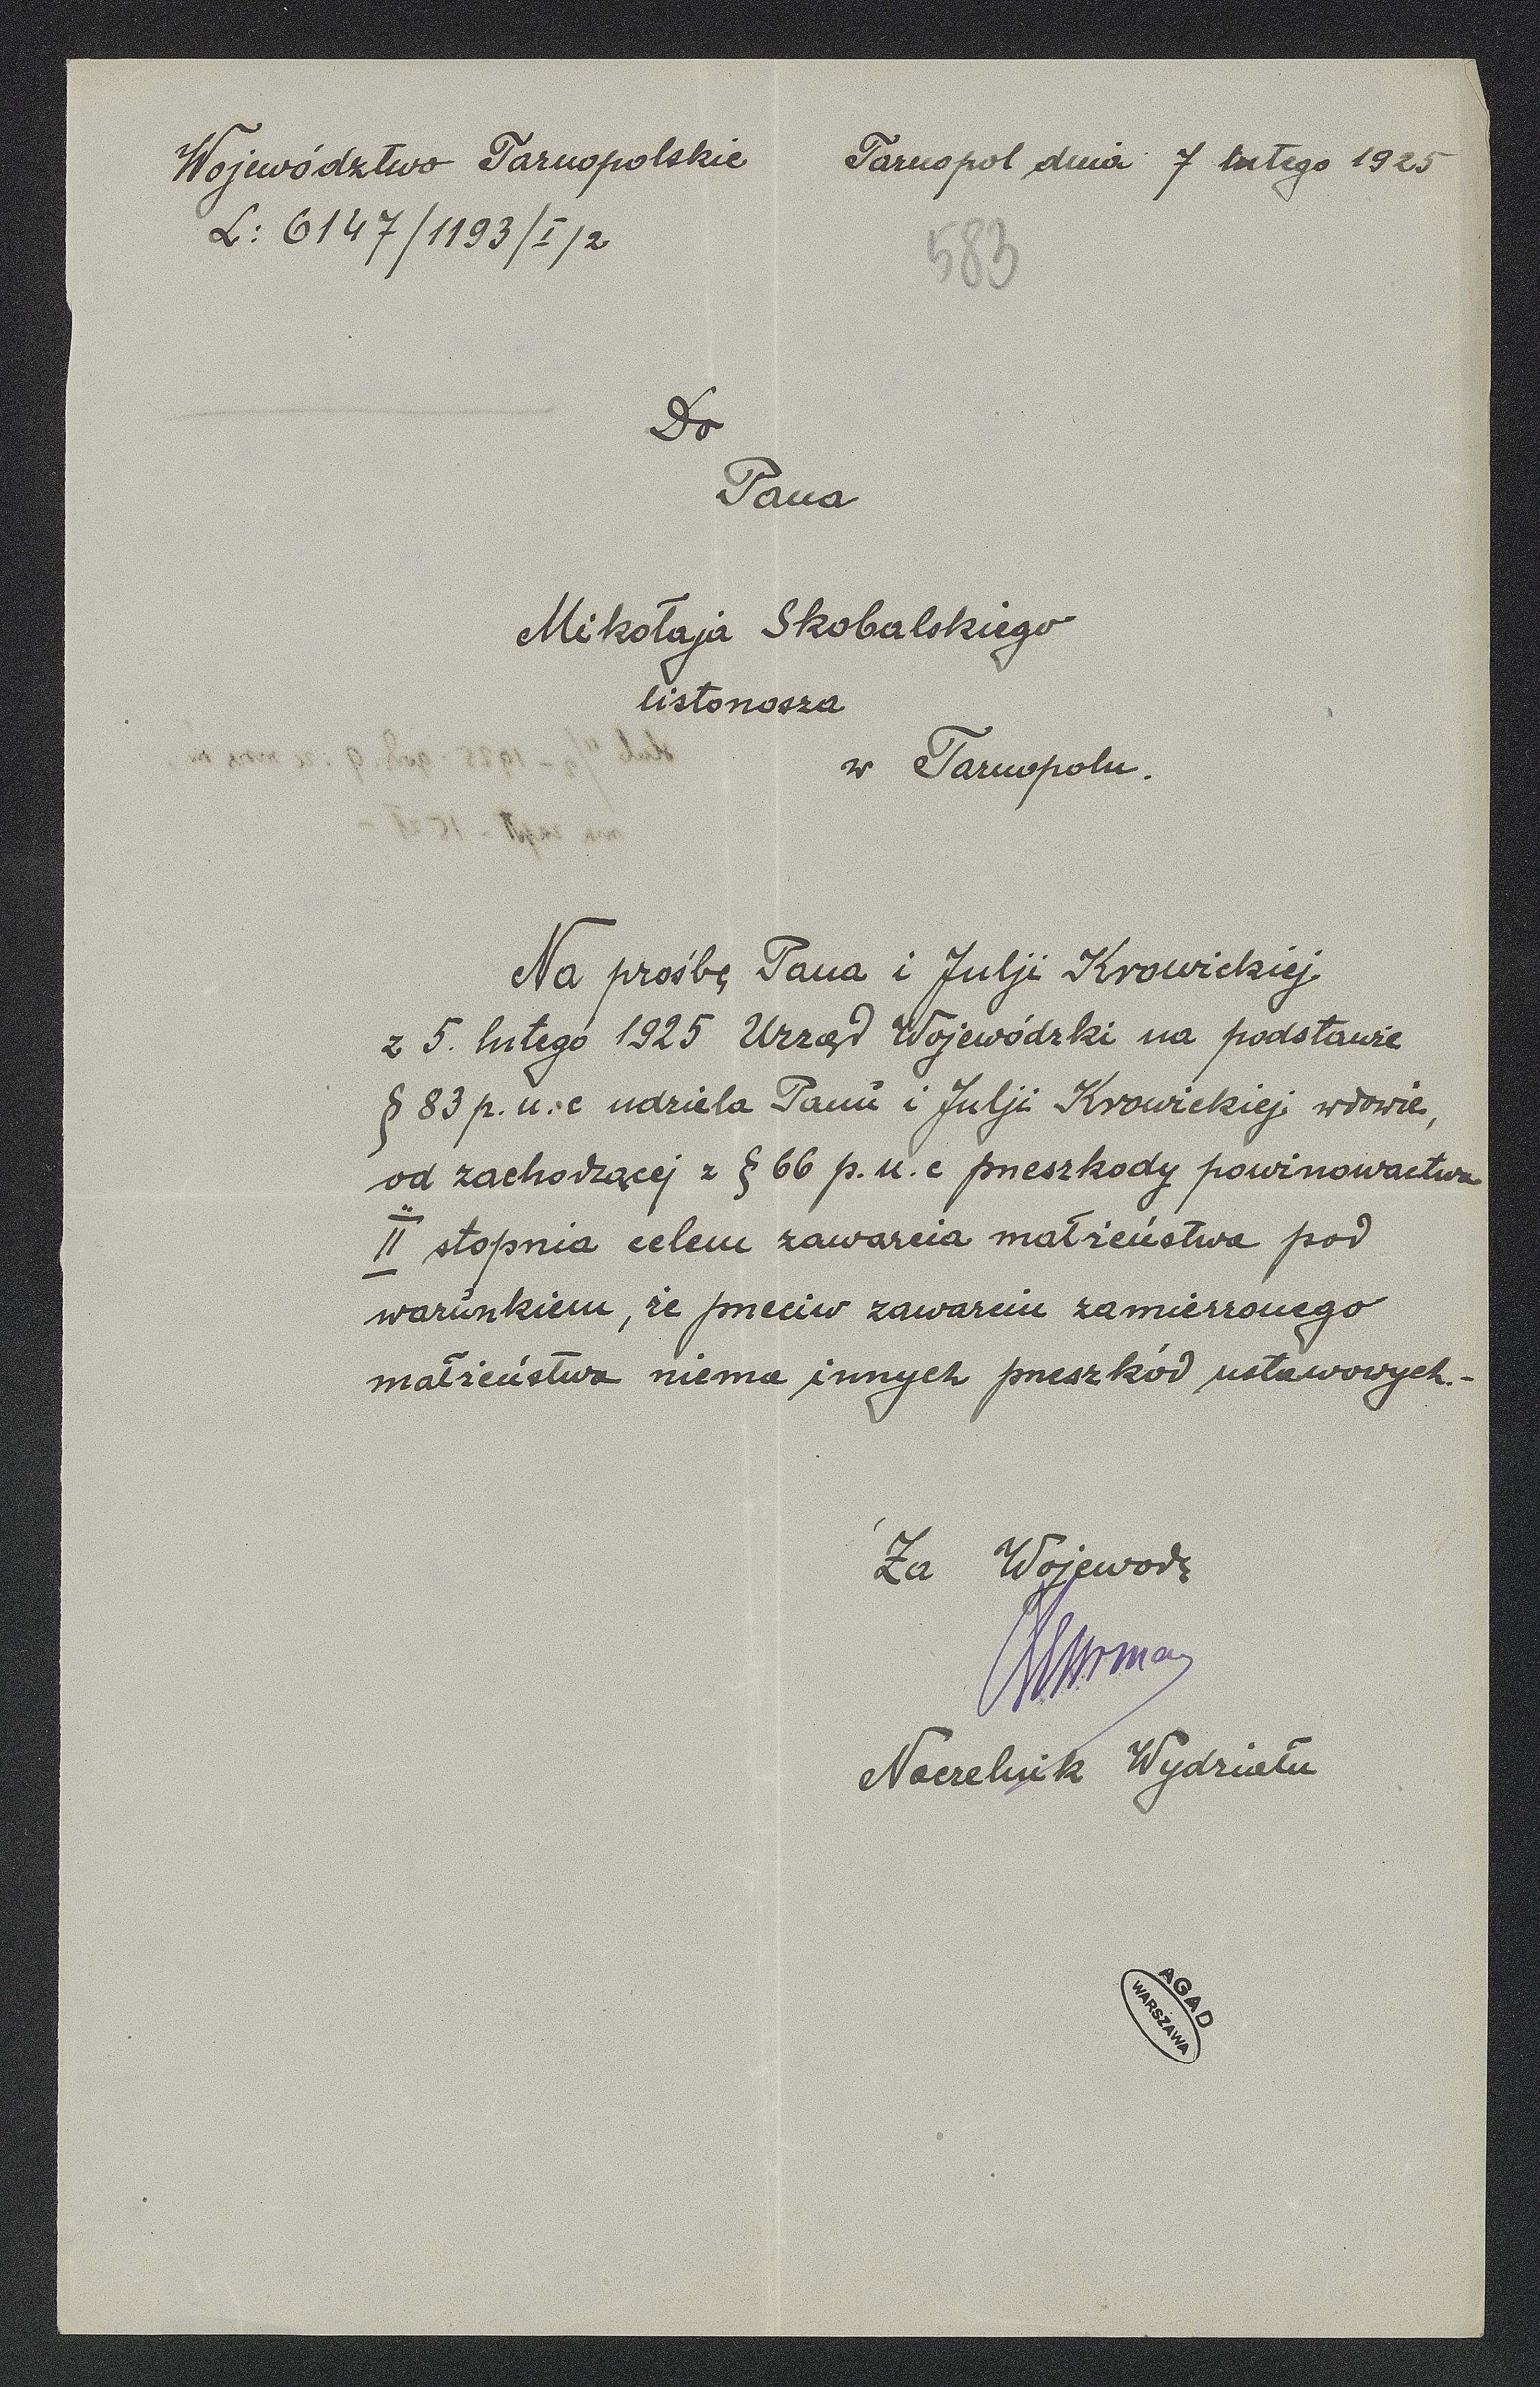 Województwo Tarnopolskie
Tarnopol dnia 7 lutego 1925
L: 6147/1193/I/2
583
Do
Pana
Mikołaja Skobalskiego
listonosza
w Tarnopolu.
Na prośbę Pana i Julji Krowickiej
z 5. lutego 1925 Urząd Wojewódzki na podstawie
§ 83 p. u. c udziela Panu i Julji Krowickiej wdowie,
od zachodzącej z § 66 p. u. c przeszkody powinowactwa
II stopnia celem zawarcia małżeństwa pod
warunkiem, że przeciw zawarciu zamierzonego
małżeństwa niema innych przeszkód ustawowych.-
Za Wojewodę
Naczelnik Wydziału
AGAD
WARSZAWA